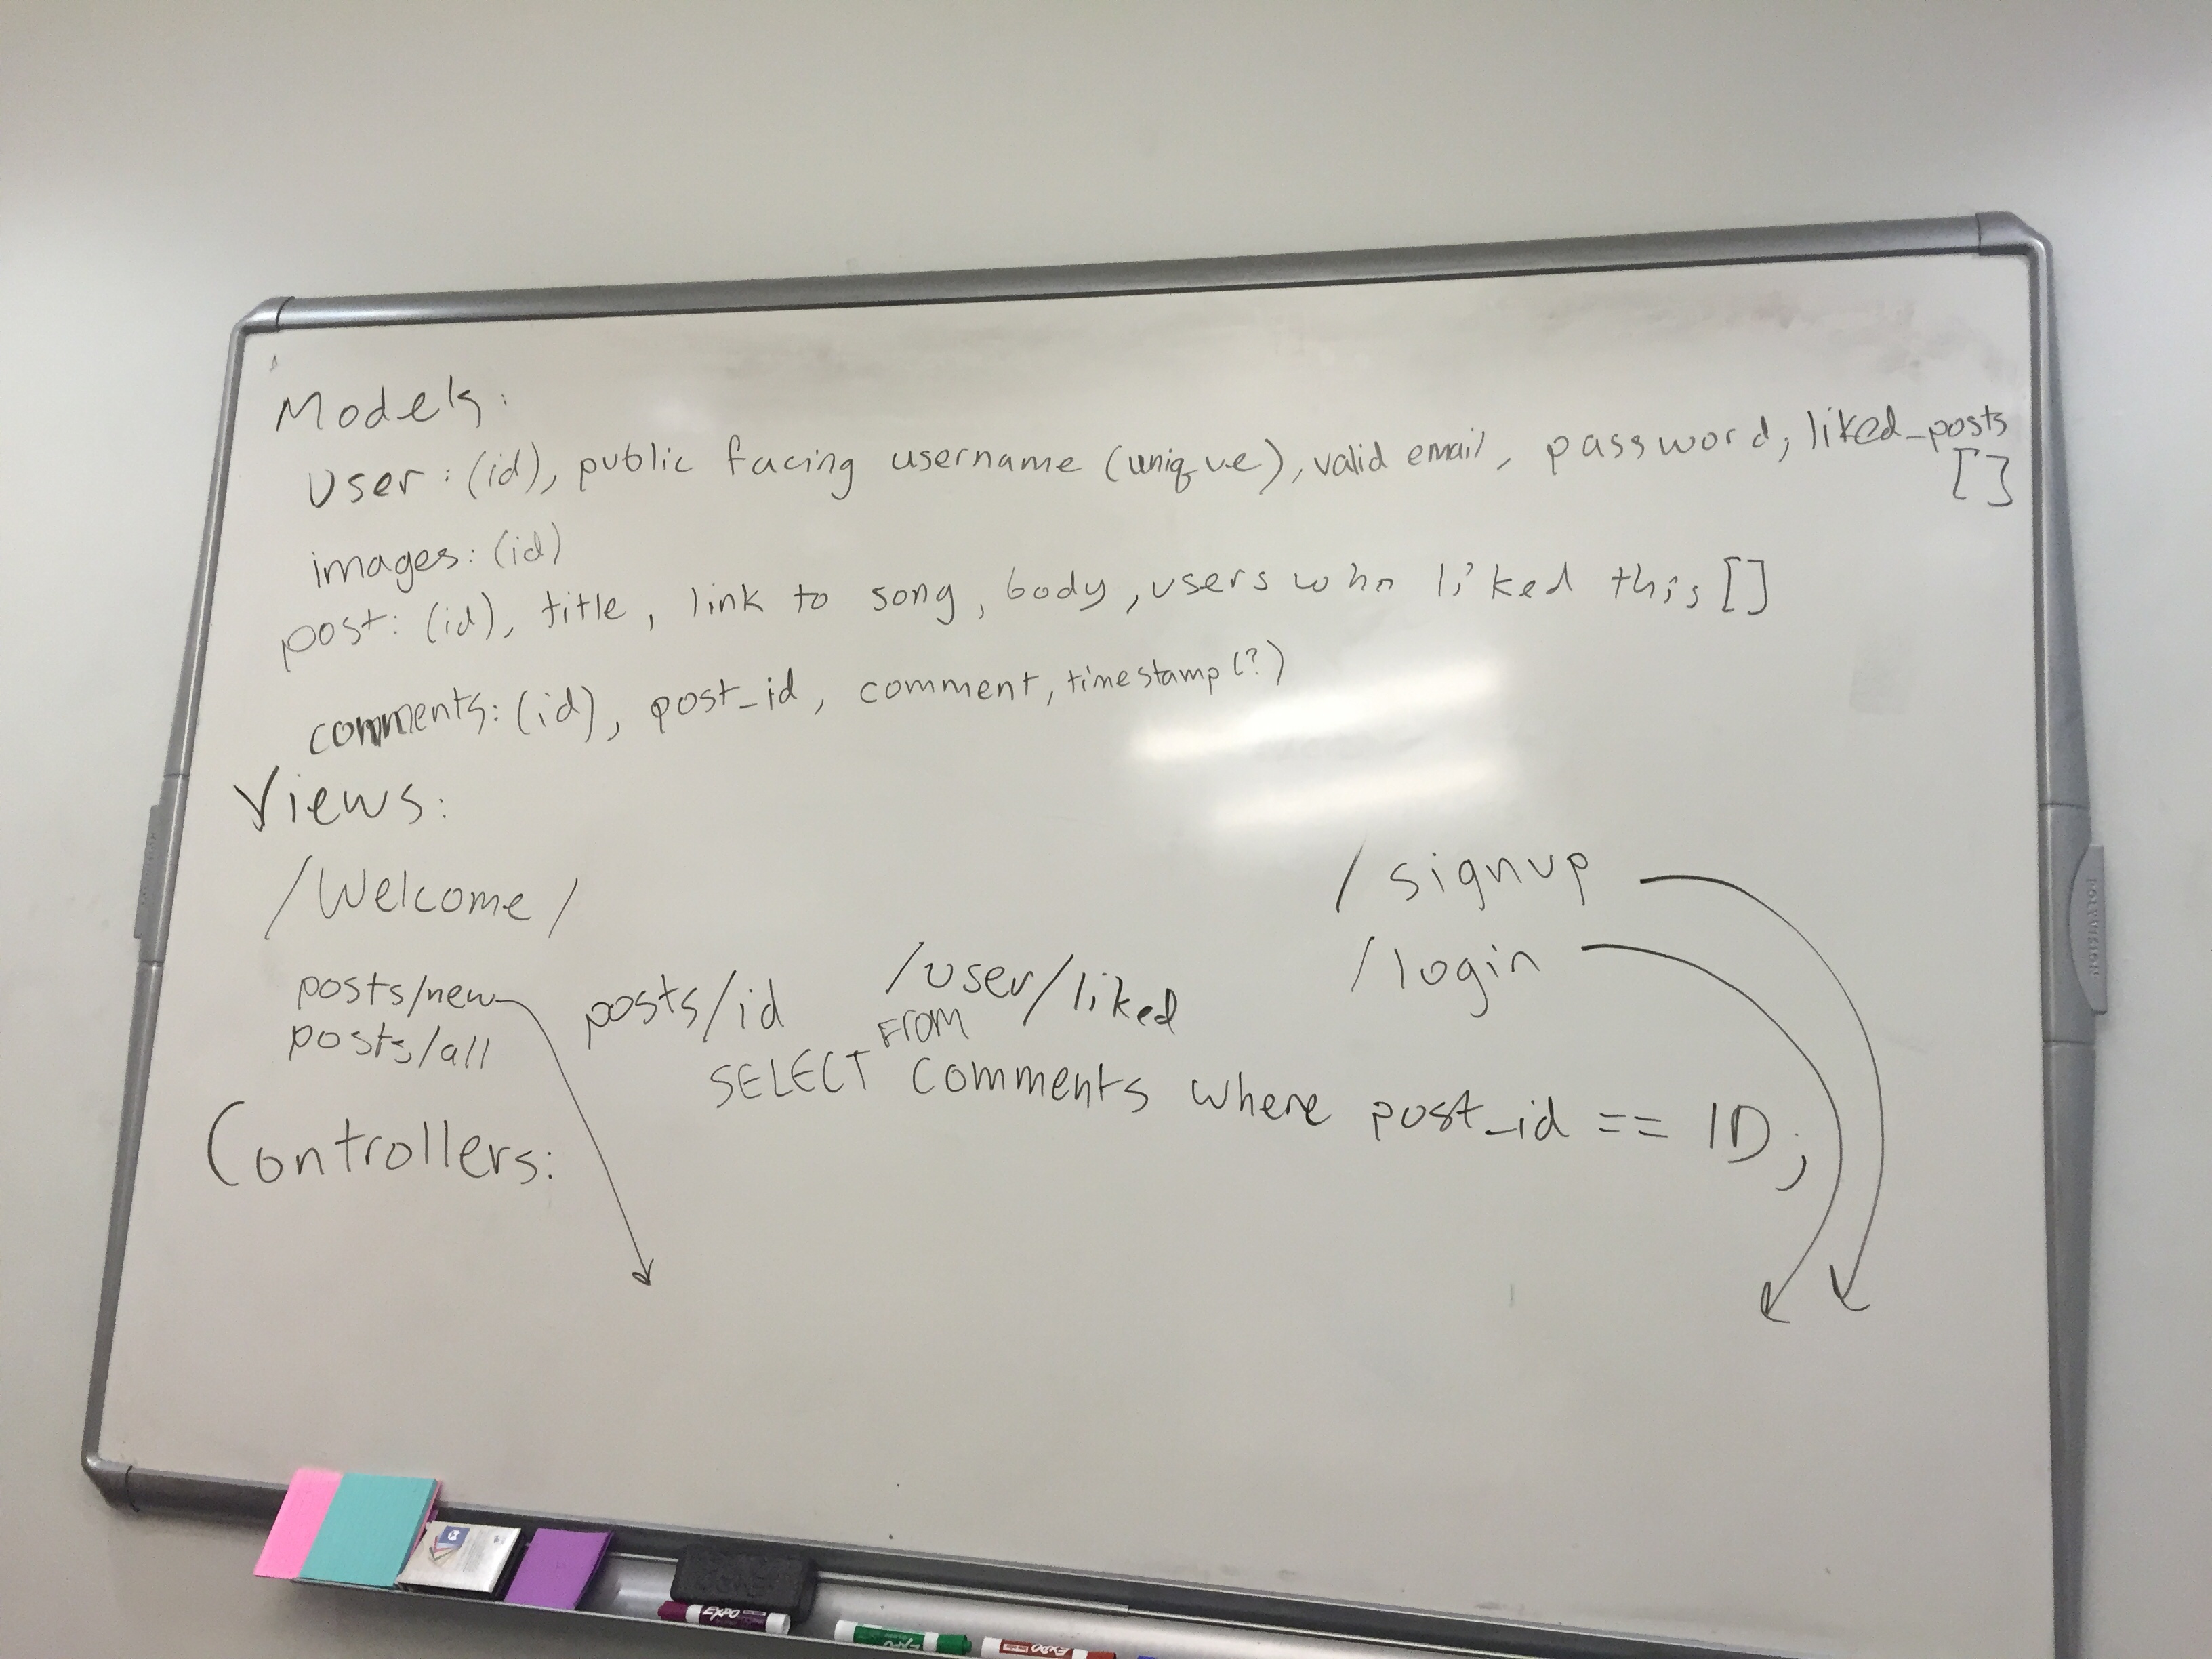 Models:
User: (id), public facing username (unique), valid email, password, liked_posts
[]
images: (id)
post: (id), title, link to song, body, users who liked this []
comments: (id), post_id, comment, timestamp (?)
Views:
/Welcome/
/signup
/login
posts/new
posts/id
/user/liked
posts/all
FROM
SELECT comments where post_id == ID;
Controllers:
POLYVISION
EXPO
EXPO
EXPO